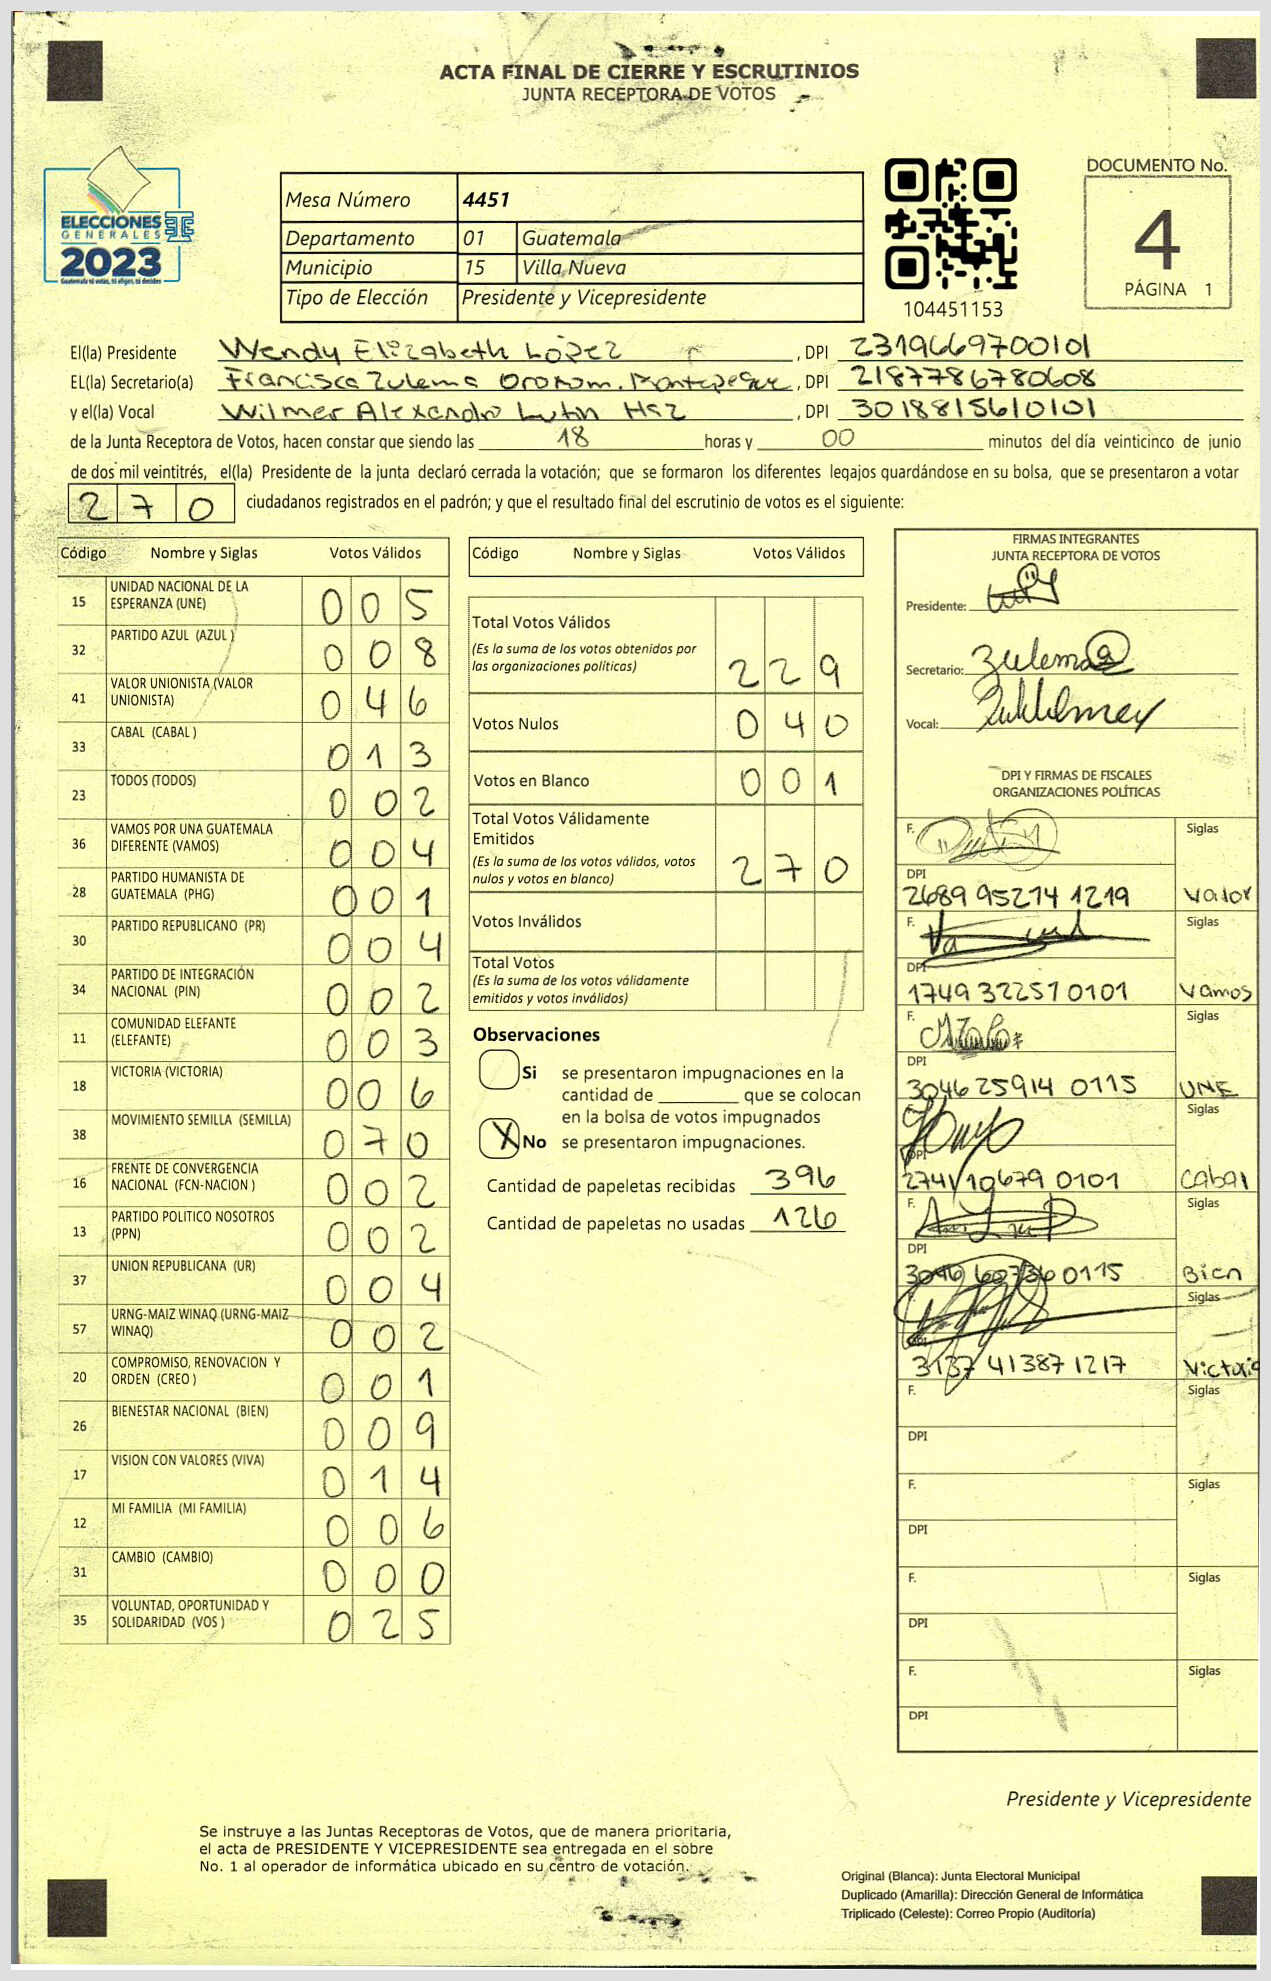 ACTA FINAL DE CIERRE Y ESCRUTINIOS
JUNTA RECEPTORA DE VOTOS
ELECCIONES
GENERALES
2023
Guatemala tú votas, tú eliges, tú decides
Mesa Número 4451
Departamento 01 Guatemala
Municipio 15 Villa Nueva
Tipo de Elección Presidente y Vicepresidente
104451153
DOCUMENTO No.
4
PÁGINA 1
El(la) Presidente Wendy Elizabeth López , DPI 2319669700101
EL(la) Secretario(a) Francisca Zulema , DPI 2187786780608
y el(la) Vocal Wilmer Alexandro , DPI 3018815610101
de la Junta Receptora de Votos, hacen constar que siendo las 18 horas y 00 minutos del día veinticinco de junio
de dos mil veintitrés, el(la) Presidente de la junta declaró cerrada la votación; que se formaron los diferentes legajos guardándose en su bolsa, que se presentaron a votar
270 ciudadanos registrados en el padrón; y que el resultado final del escrutinio de votos es el siguiente:
Código Nombre y Siglas Votos Válidos
15 UNIDAD NACIONAL DE LA ESPERANZA (UNE) 005
32 PARTIDO AZUL (AZUL ) 008
41 VALOR UNIONISTA (VALOR UNIONISTA) 046
33 CABAL (CABAL ) 013
23 TODOS (TODOS) 002
36 VAMOS POR UNA GUATEMALA DIFERENTE (VAMOS) 004
28 PARTIDO HUMANISTA DE GUATEMALA (PHG) 001
30 PARTIDO REPUBLICANO (PR) 004
34 PARTIDO DE INTEGRACIÓN NACIONAL (PIN) 002
11 COMUNIDAD ELEFANTE (ELEFANTE) 003
18 VICTORIA (VICTORIA) 006
38 MOVIMIENTO SEMILLA (SEMILLA) 070
16 FRENTE DE CONVERGENCIA NACIONAL (FCN-NACION ) 002
13 PARTIDO POLITICO NOSOTROS (PPN) 002
37 UNION REPUBLICANA (UR) 004
57 URNG-MAIZ WINAQ (URNG-MAIZ WINAQ) 002
20 COMPROMISO, RENOVACION Y ORDEN (CREO ) 001
26 BIENESTAR NACIONAL (BIEN) 009
17 VISION CON VALORES (VIVA) 014
12 MI FAMILIA (MI FAMILIA) 006
31 CAMBIO (CAMBIO) 000
35 VOLUNTAD, OPORTUNIDAD Y SOLIDARIDAD (VOS ) 025
Código Nombre y Siglas Votos Válidos
Total Votos Válidos
(Es la suma de los votos obtenidos por
las organizaciones políticas) 229
Votos Nulos 040
Votos en Blanco 001
Total Votos Válidamente
Emitidos
(Es la suma de los votos válidos, votos
nulos y votos en blanco) 270
Votos Inválidos
Total Votos
(Es la suma de los votos válidamente
emitidos y votos inválidos)
Observaciones
Si se presentaron impugnaciones en la
cantidad de ________ que se colocan
en la bolsa de votos impugnados
X No se presentaron impugnaciones.
Cantidad de papeletas recibidas 396
Cantidad de papeletas no usadas 126
FIRMAS INTEGRANTES
JUNTA RECEPTORA DE VOTOS
Presidente:
Secretario: Zulema
Vocal:
DPI Y FIRMAS DE FISCALES
ORGANIZACIONES POLÍTICAS
F. Siglas
DPI
2689 95274 1219 Valor
F. Siglas
DPI
1749 32251 0101 Vamos
F. Siglas
DPI
3046 25914 0115 UNE
Siglas
DPI
2741 10679 0101 Cabal
F. Siglas
DPI
3046 60736 0115 Bien
F. Siglas
DPI
3137 41387 1217 Victoria
F. Siglas
DPI
F. Siglas
DPI
F. Siglas
DPI
F. Siglas
DPI
Presidente y Vicepresidente
Se instruye a las Juntas Receptoras de Votos, que de manera prioritaria,
el acta de PRESIDENTE Y VICEPRESIDENTE sea entregada en el sobre
No. 1 al operador de informática ubicado en su centro de votación.
Original (Blanca): Junta Electoral Municipal
Duplicado (Amarilla): Dirección General de Informática
Triplicado (Celeste): Correo Propio (Auditoría)